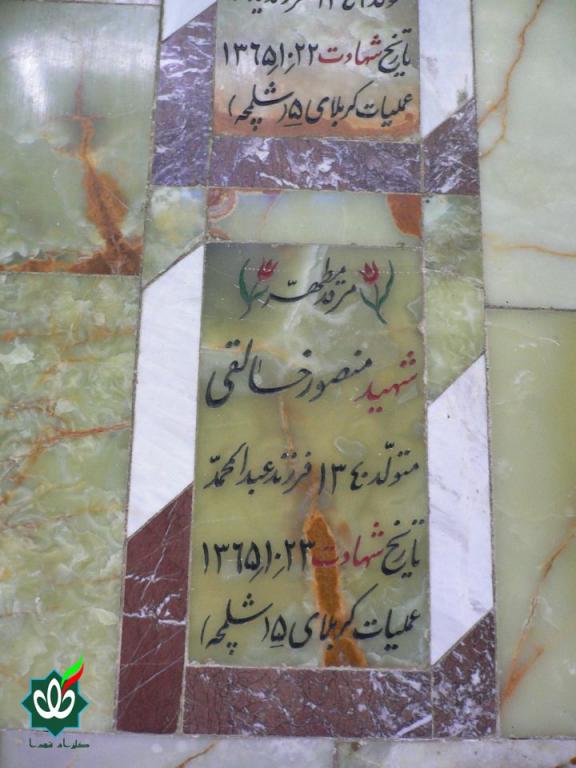 تاریخ شهادت ۱۳۶۵٫۱۰٫۲۲
عملیات کربلای ۵ (شلمچه)
مرقد مطهّر
شهید منصور خالقی
متولّد ۱۳۴۰ فرزند عبدالمحمّد
تاریخ شهادت ۱۳۶۵٫۱۰٫۲۳
عملیات کربلای ۵ (شلمچه)
گلزار شهدا